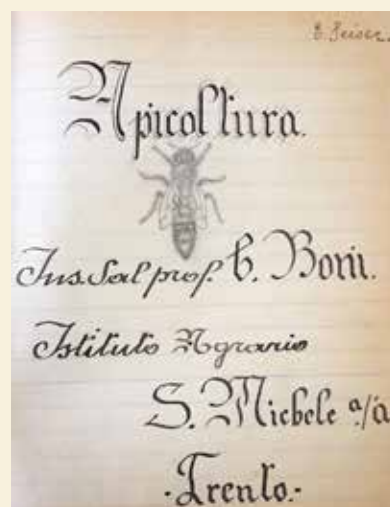 Apicoltura.
Ins. dal prof. C. Boni.
Istituto Agrario
S. Michele a/a
·Trento.-